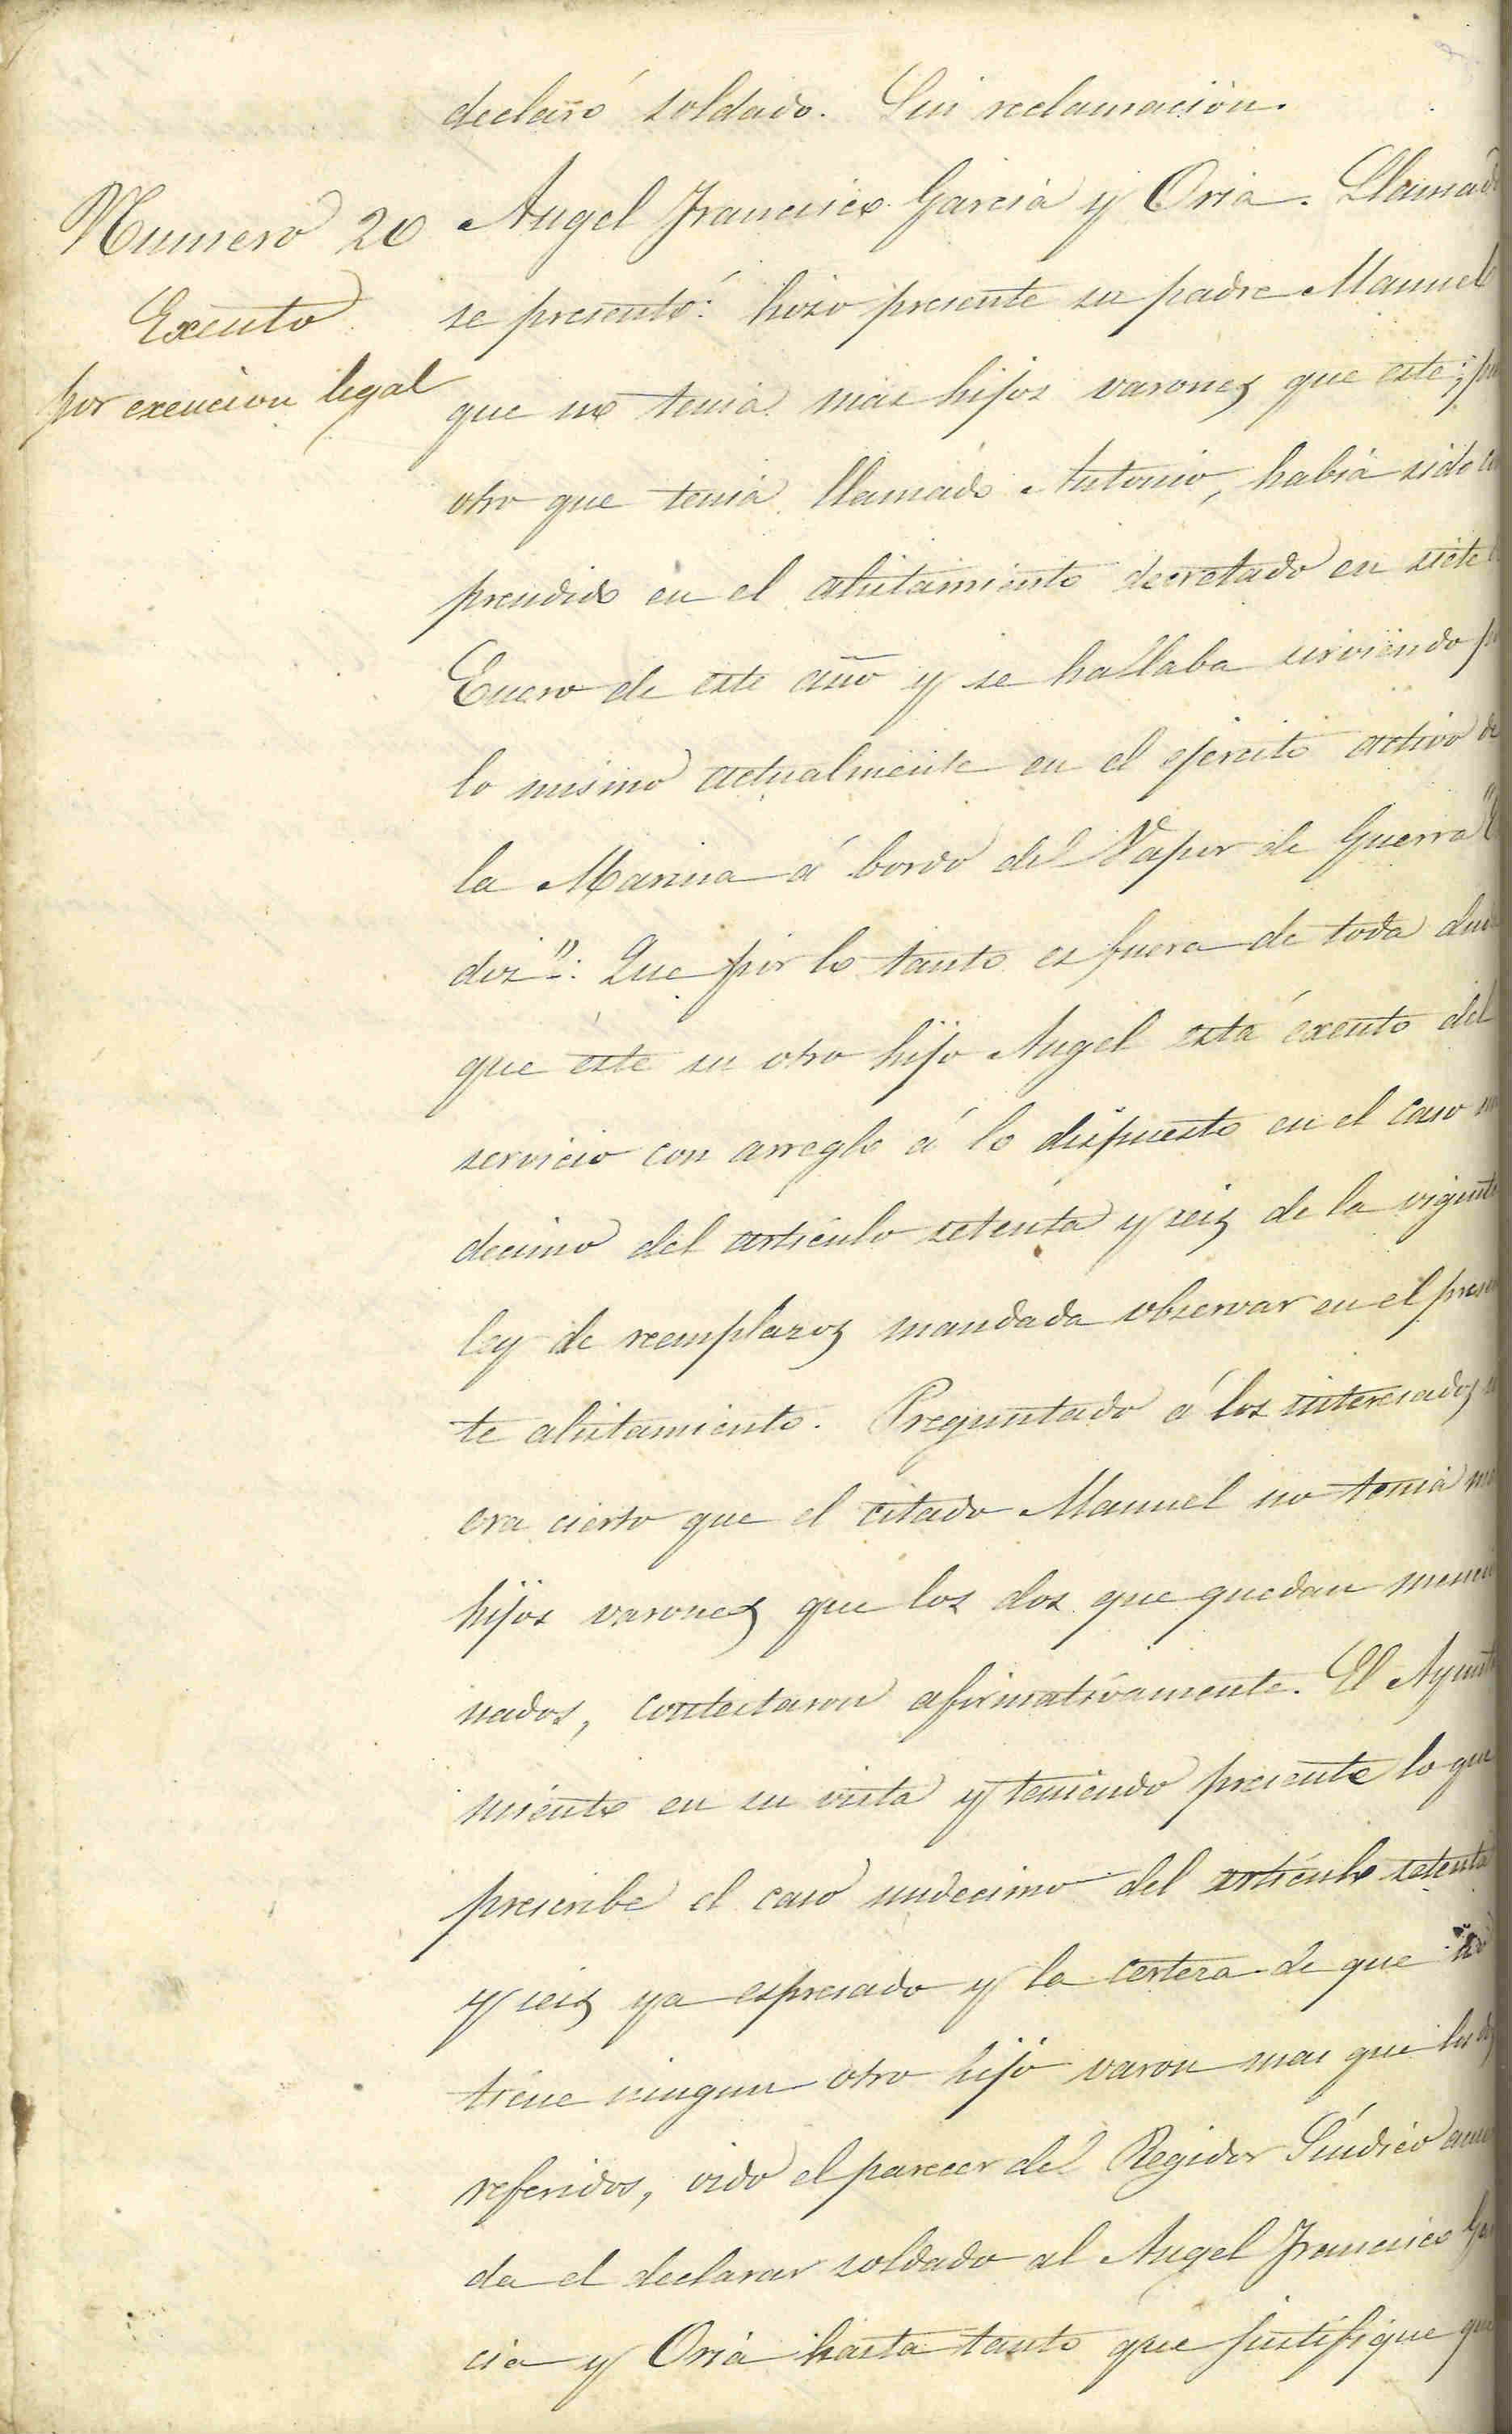 declaró soldado. Sin reclamación.
Numero 20
Exento
por exencion legal
Angel Francisco Garcia y Oria. Llamado
se presentó: hizo presente su padre Manuel
que no tenia mas hijos varones que este; pu
otro que tenia llamado Antonio, habia sido com
prendido en el alistamiento decretado en siete
Enero de este año y se hallaba sirviendo p
lo mismo actualmente en el ejercito activo de
la Marina á bordo del Vapor de Guerra "
diz": Que por lo tanto es fuera de toda du
que este su otro hijo Angel está exento del
servicio con arreglo á lo dispuesto en el caso un
decimo del artículo setenta y seis de la vigente
ley de reemplazos mandada observar en el presen
te alistamiento. Preguntado á los interesados si
era cierto que el citado Manuel no tenia ma
hijos varones que los dos que quedan mencio
nados, contestaron afirmativamente. El Ayunta
miento en su vista y teniendo presente lo que
prescribe el caso undecimo del artículo setenta
y seis ya espresado y la certeza de que no
tiene ningun otro hijo varon mas que los dos
referidos, oido el parecer del Regidor Síndico acuer
da el declarar soldado al Angel Francisco Gar
cia y Oria hasta tanto que justifique que